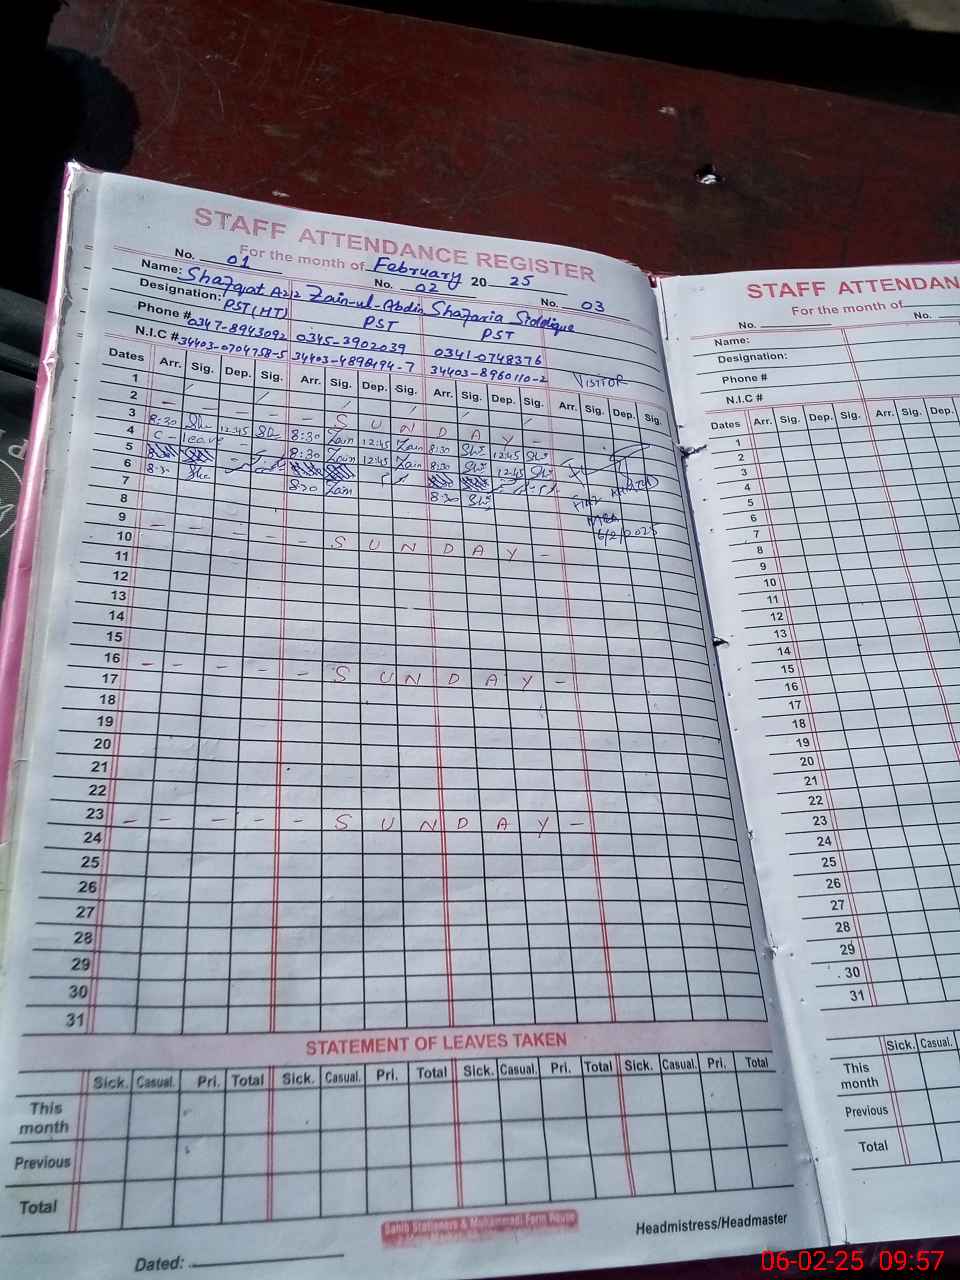 STAFF ATTENDANCE REGISTER
For the month of February 2025
No. 01 No. 02 No. 03
Name: Zain-ul-Abdin
Designation: PST (HT) PST PST
Phone # 0347-8943092 0345-3902039 0341-0748376
N.I.C # 34403-0704758-5 34403-4898494-7 34403-8960110-2 VISITOR
Dates Arr. Sig. Dep. Sig. Arr. Sig. Dep. Sig. Arr. Sig. Dep. Sig. Arr. Sig. Dep. Sig.
1
2 - - - - - S U N D A Y -
3 8:30 12:45 8:30 Zain 12:45 Zain 8:30 12:45
4 C - leave - 8:30 Zain 12:45 Zain 8:30 12:45
5
6 8:30 8:30 Zain 8:30
7
6/2/2025
8
9 - - - - - S U N D A Y -
10
11
12
13
14
15
16 - - - - - - S U N D A Y -
17
18
19
20
21
22
23 - - - - - S U N D A Y -
24
25
26
27
28
29
30
31
STATEMENT OF LEAVES TAKEN
Sick. Casual. Pri. Total Sick. Casual. Pri. Total Sick. Casual. Pri. Total Sick. Casual. Pri. Total
This month
Previous
Total
Headmistress/Headmaster
Dated:
STAFF ATTENDAN
For the month of
No. No.
Name:
Designation:
Phone #
N.I.C #
Dates Arr. Sig. Dep. Sig. Arr. Sig. Dep.
1
2
3
4
5
6
7
8
9
10
11
12
13
14
15
16
17
18
19
20
21
22
23
24
25
26
27
28
29
30
31
Sick. Casual.
This month
Previous
Total
06-02-25 09:57